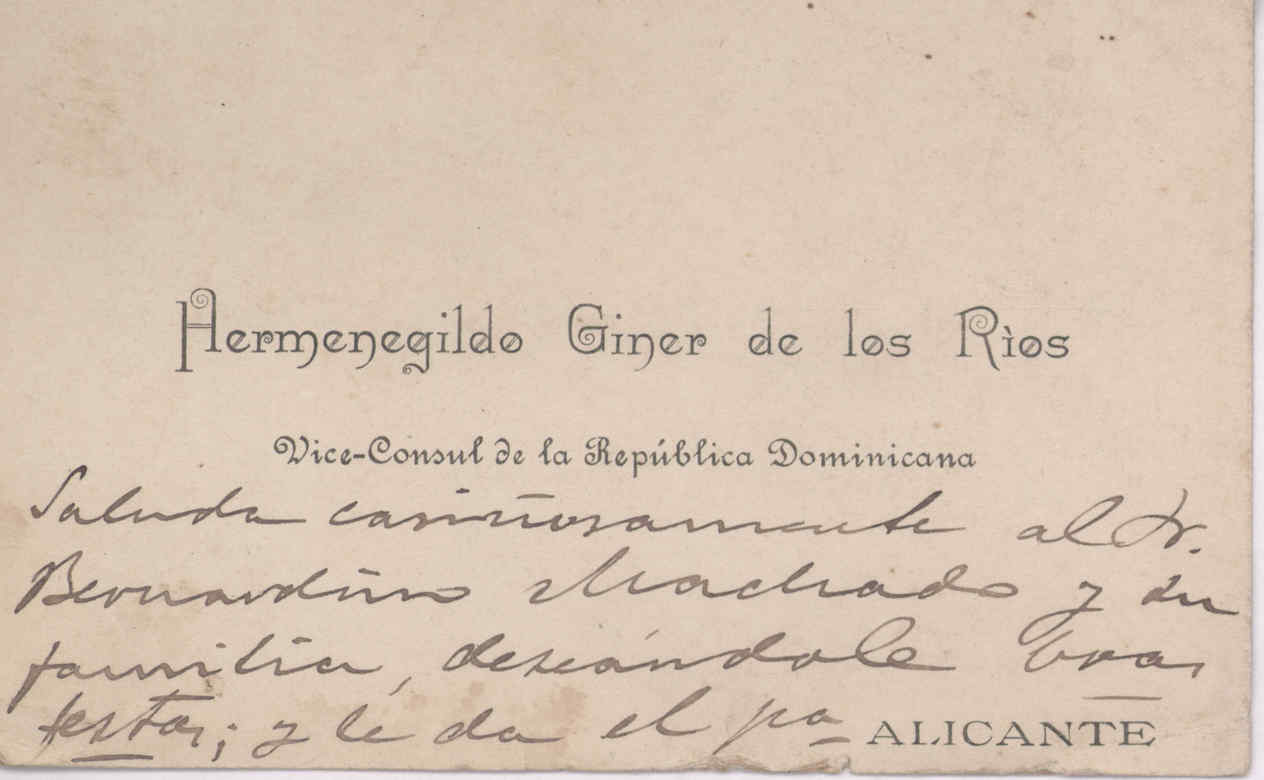 Hermenegildo Giner de los Rìos
Vice-Consul de la República Dominicana
Saluda cariñosamente al Dr.
Bernardino Machado y su
familia, deseándole boas
festas; y le da el pa-
ALICANTE